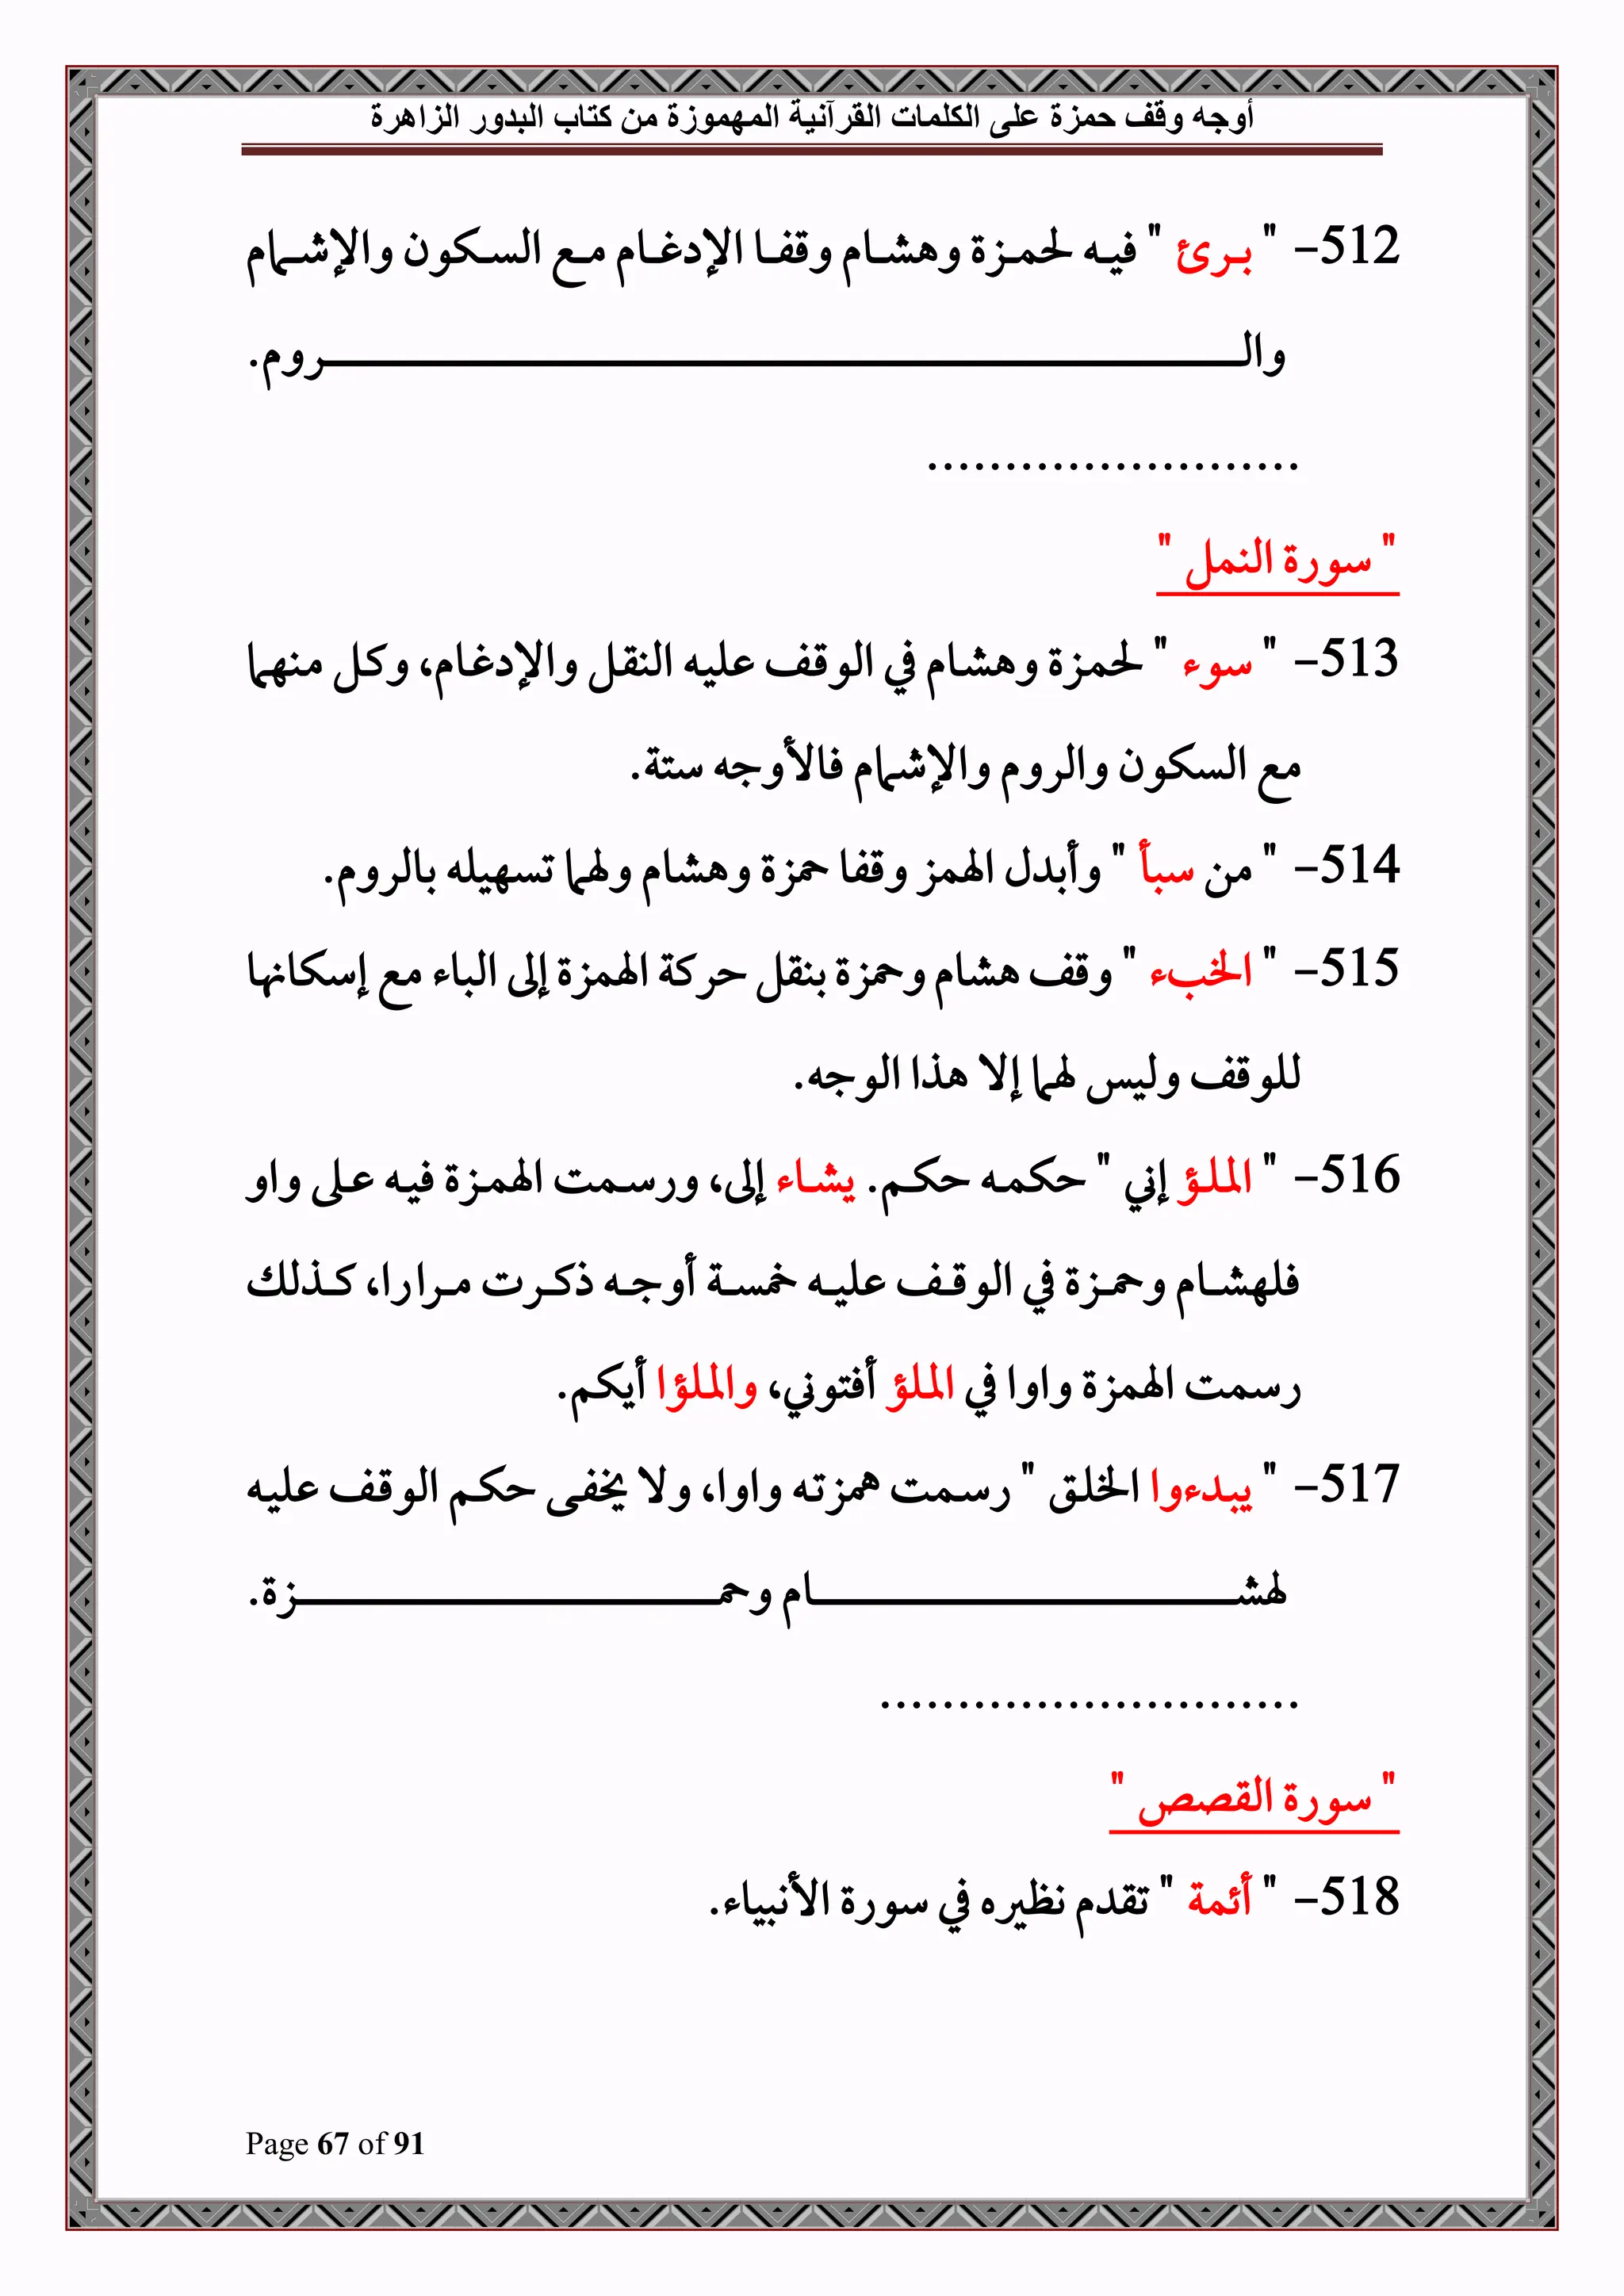 أوجه وقف حمزة على الكلمات القرآنية المهموزة من كتاب البدور الزاهرة
512- " برئ " فيه لحمزة وهشام وقفا الإدغام مع السكون والإشمام
والروم.
........................
" سورة النمل "
513- " سوء " لحمزة وهشام في الوقف عليه النقل والإدغام، وكل منهما
مع السكون والروم والإشمام فالأوجه ستة.
514- " من سبأ " وأبدل الهمز وقفا حمزة وهشام ولهما تسهيله بالروم.
515- " الخبء " وقف هشام وحمزة بنقل حركة الهمزة إلى الباء مع إسكانها
للوقف وليس لهما إلا هذا الوجه.
516- " الملؤ إني " حكمه حكم. يشاء إلى، ورسمت الهمزة فيه على واو
فلهشام وحمزة في الوقف عليه خمسة أوجه ذكرت مرارا، كذلك
رسمت الهمزة واوا في الملؤ أفتوني، والملؤا أيكم.
517- " يبدءوا الخلق " رسمت همزته واوا، ولا يخفى حكم الوقف عليه
لهشام وحمزة.
...........................
" سورة القصص "
518- " أئمة " تقدم نظيره في سورة الأنبياء.
Page 67 of 91